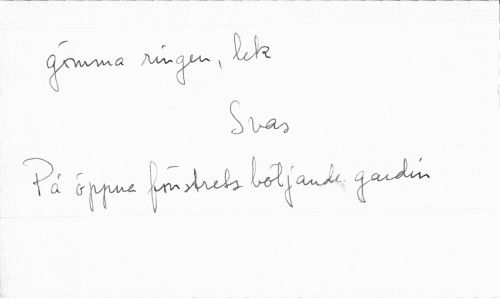 gömma ringen, lek
Svas
På öppna fönstrets böljande gardin